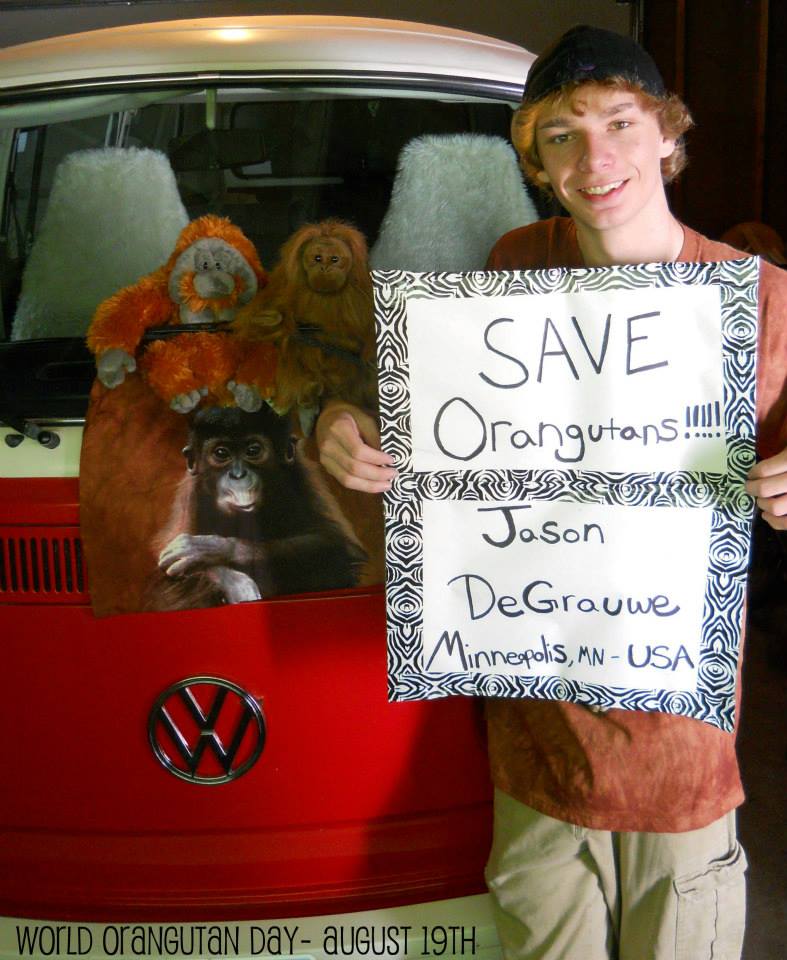 SAVE
Orangutans!!!!!
Jason
DeGrauwe
Minneapolis, MN - USA
VW
WORLD ORANGUTAN DAY- AUGUST 19TH